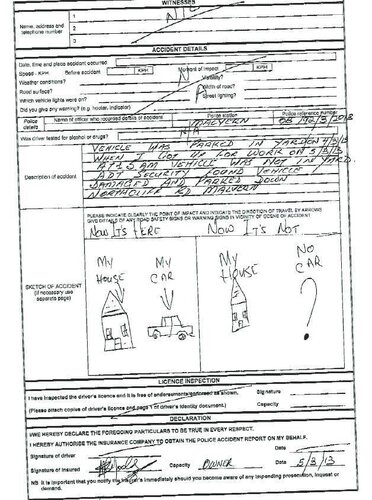 WITNESSES
Name, address and telephone number
1
2
3
ACCIDENT DETAILS
Date, time and place accident occurred
Speed - KPH Before accident KPH Moment of impact KPH
Weather conditions? Visibility?
Road surface? Width of road?
Which vehicle lights were on? Street lighting?
Did you give any warning? (e.g. hooter, indicator)
Police details
Name of officer who recorded details of accident
Police station
MALVERN
Police reference number
Was driver tested for alcohol or drugs? N/A
Description of accident
VEHICLE WAS PARKED IN YARD ON
WHEN I GOT UP FOR WORK ON 5/3/13
AM VEHICLE WAS NOT IN YARD.
ADT SECURITY FOUND VEHICLE
DAMAGED AND PARKED DOWN
NORTHOLME RD MALVERN
PLEASE INDICATE CLEARLY THE POINT OF IMPACT AND INDICATE THE DIRECTION OF TRAVEL BY ARROWS
GIVE DETAILS OF ANY ROAD SAFETY SIGNS OR WARNING SIGNS IN VICINITY OF SCENE OF ACCIDENT
NOW IT'S HERE NOW IT'S NOT
SKETCH OF ACCIDENT
(if necessary use separate page)
MY HOUSE
MY CAR
MY HOUSE
NO CAR
?
LICENCE INSPECTION
I have inspected the driver's licence and it is free of endorsements/endorsed as shown. Signature
(Please attach copies of driver's licence and page 1 of driver's identity document.) Capacity
DECLARATION
I/WE HEREBY DECLARE THE FOREGOING PARTICULARS TO BE TRUE IN EVERY RESPECT.
I HEREBY AUTHORISE THE INSURANCE COMPANY TO OBTAIN THE POLICE ACCIDENT REPORT ON MY BEHALF.
Signature of driver Date
Signature of insured Capacity OWNER Date 5/3/13
NB It is important that you notify the insurer's immediately should you become aware of any impending prosecution, inquest or demand.